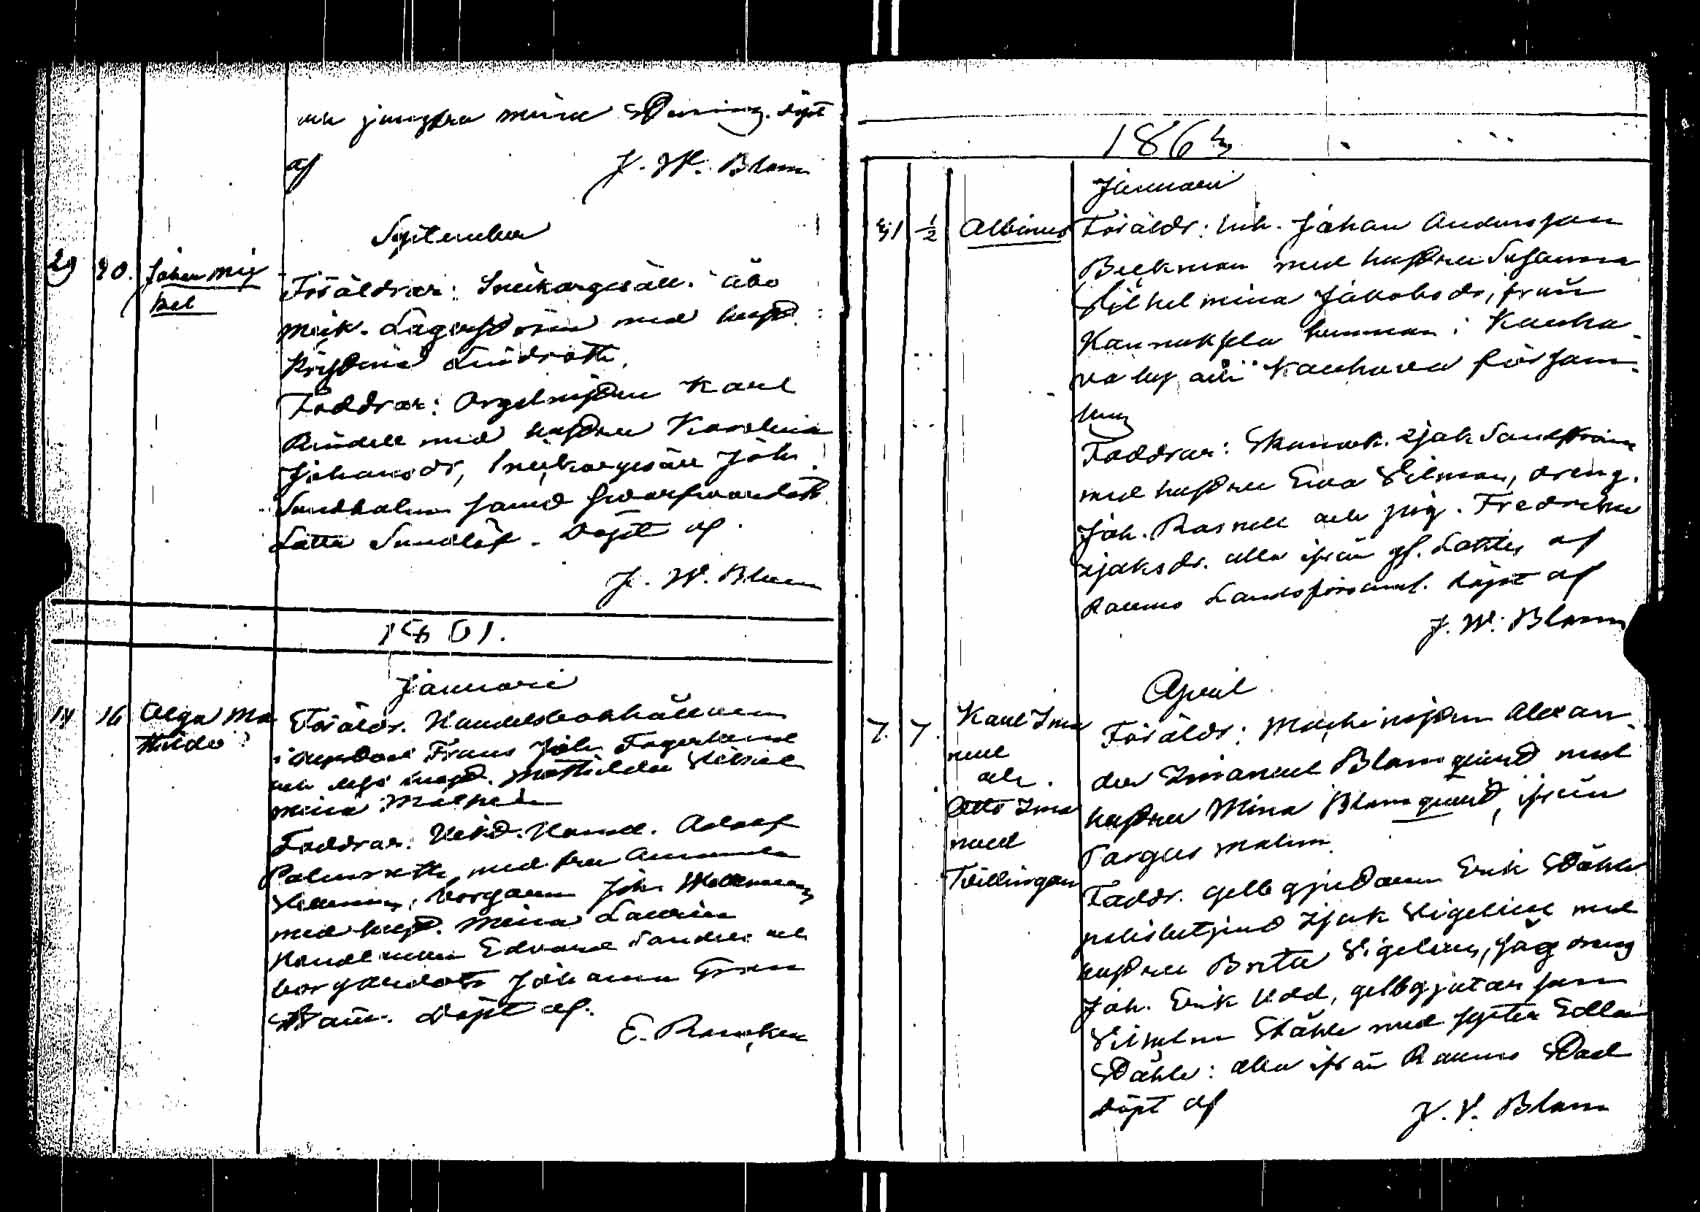 och jungfru Mina Döpt
af J. W. Blom
September
29 30. Johan Mic
kel
Föräldrar: Snickargesäll. i Åbo
Mik. Lagerström med hust.
Kristina Lindroth.
Faddrar: Orgelnisten Karl
Rindell med hustru Karolina
Johansdr, Snickargesäll Joh.
Sundholm samt
Lotta Sundlöf. Döpt af
J. W. Blom
1861.
Januari
14 16 Olga Ma
thilda
Föräldr. Handelsbokhållaren
i Frans Joh. Fagerlund
och dess hust. Mathilda Vilhel
mina
Faddrar: Handl. Adolf
Palmroth med fru Amanda
borgaren Joh.
med hust. Mina Laurén
Handlanden Edvard Sandell och
Johanna Grön
Döpt af.
E.
1863
Januari
31 1/2 Albinus
Föräldr: Inh. Johan Andersson
Beckman med hustru Susanna
Vilhelmina Jakobsdr, från
hemman i Kauha-
va by och Kauhava försam-
ling
Faddrar: Skomak. Isak Sandström
med hustru Eva Vilman, dreng.
Joh. Rasnell och pig. Fredrika
Isaksdr. alla ifrån gf. af
Raumo Landsförsaml. Döpt af
J. W. Blom
April
7. 7. Karl Ima
nuel
och
Otto Ima
nuel
Tvillingar
Föräldr: Maskinisten Alexan-
der Imanuel Blomqvist med
hustru Mina Blomqvist, ifrån
Pargas malm.
Faddr. gelbgjutaren Erik Ståhle
Isak Vigelius med
hustru Brita Vigelius, dreng
Joh. Erik Udd, gelbgjutar
Vilhelm Ståhle med syster Edla
Ståhle: alla ifrån Raumo Stad
Döpt af J. V. Blom